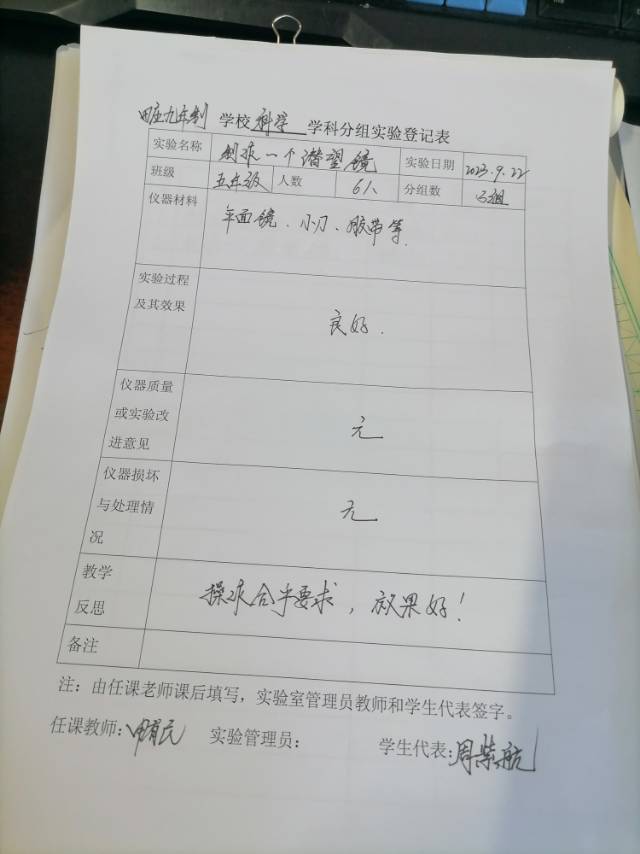 田庄九年制 学校 科学 学科分组实验登记表
实验名称 制作一个潜望镜 实验日期 2023.9.22
班级 五年级 人数 6人 分组数 3组
仪器材料 平面镜、小刀、胶带等.
实验过程
及其效果 良好.
仪器质量
或实验改
进意见 无
仪器损坏
与处理情
况 无
教学
反思 操作合乎要求，效果好！
备注
注：由任课老师课后填写，实验室管理员教师和学生代表签字。
任课教师： 实验管理员： 学生代表：周紫航